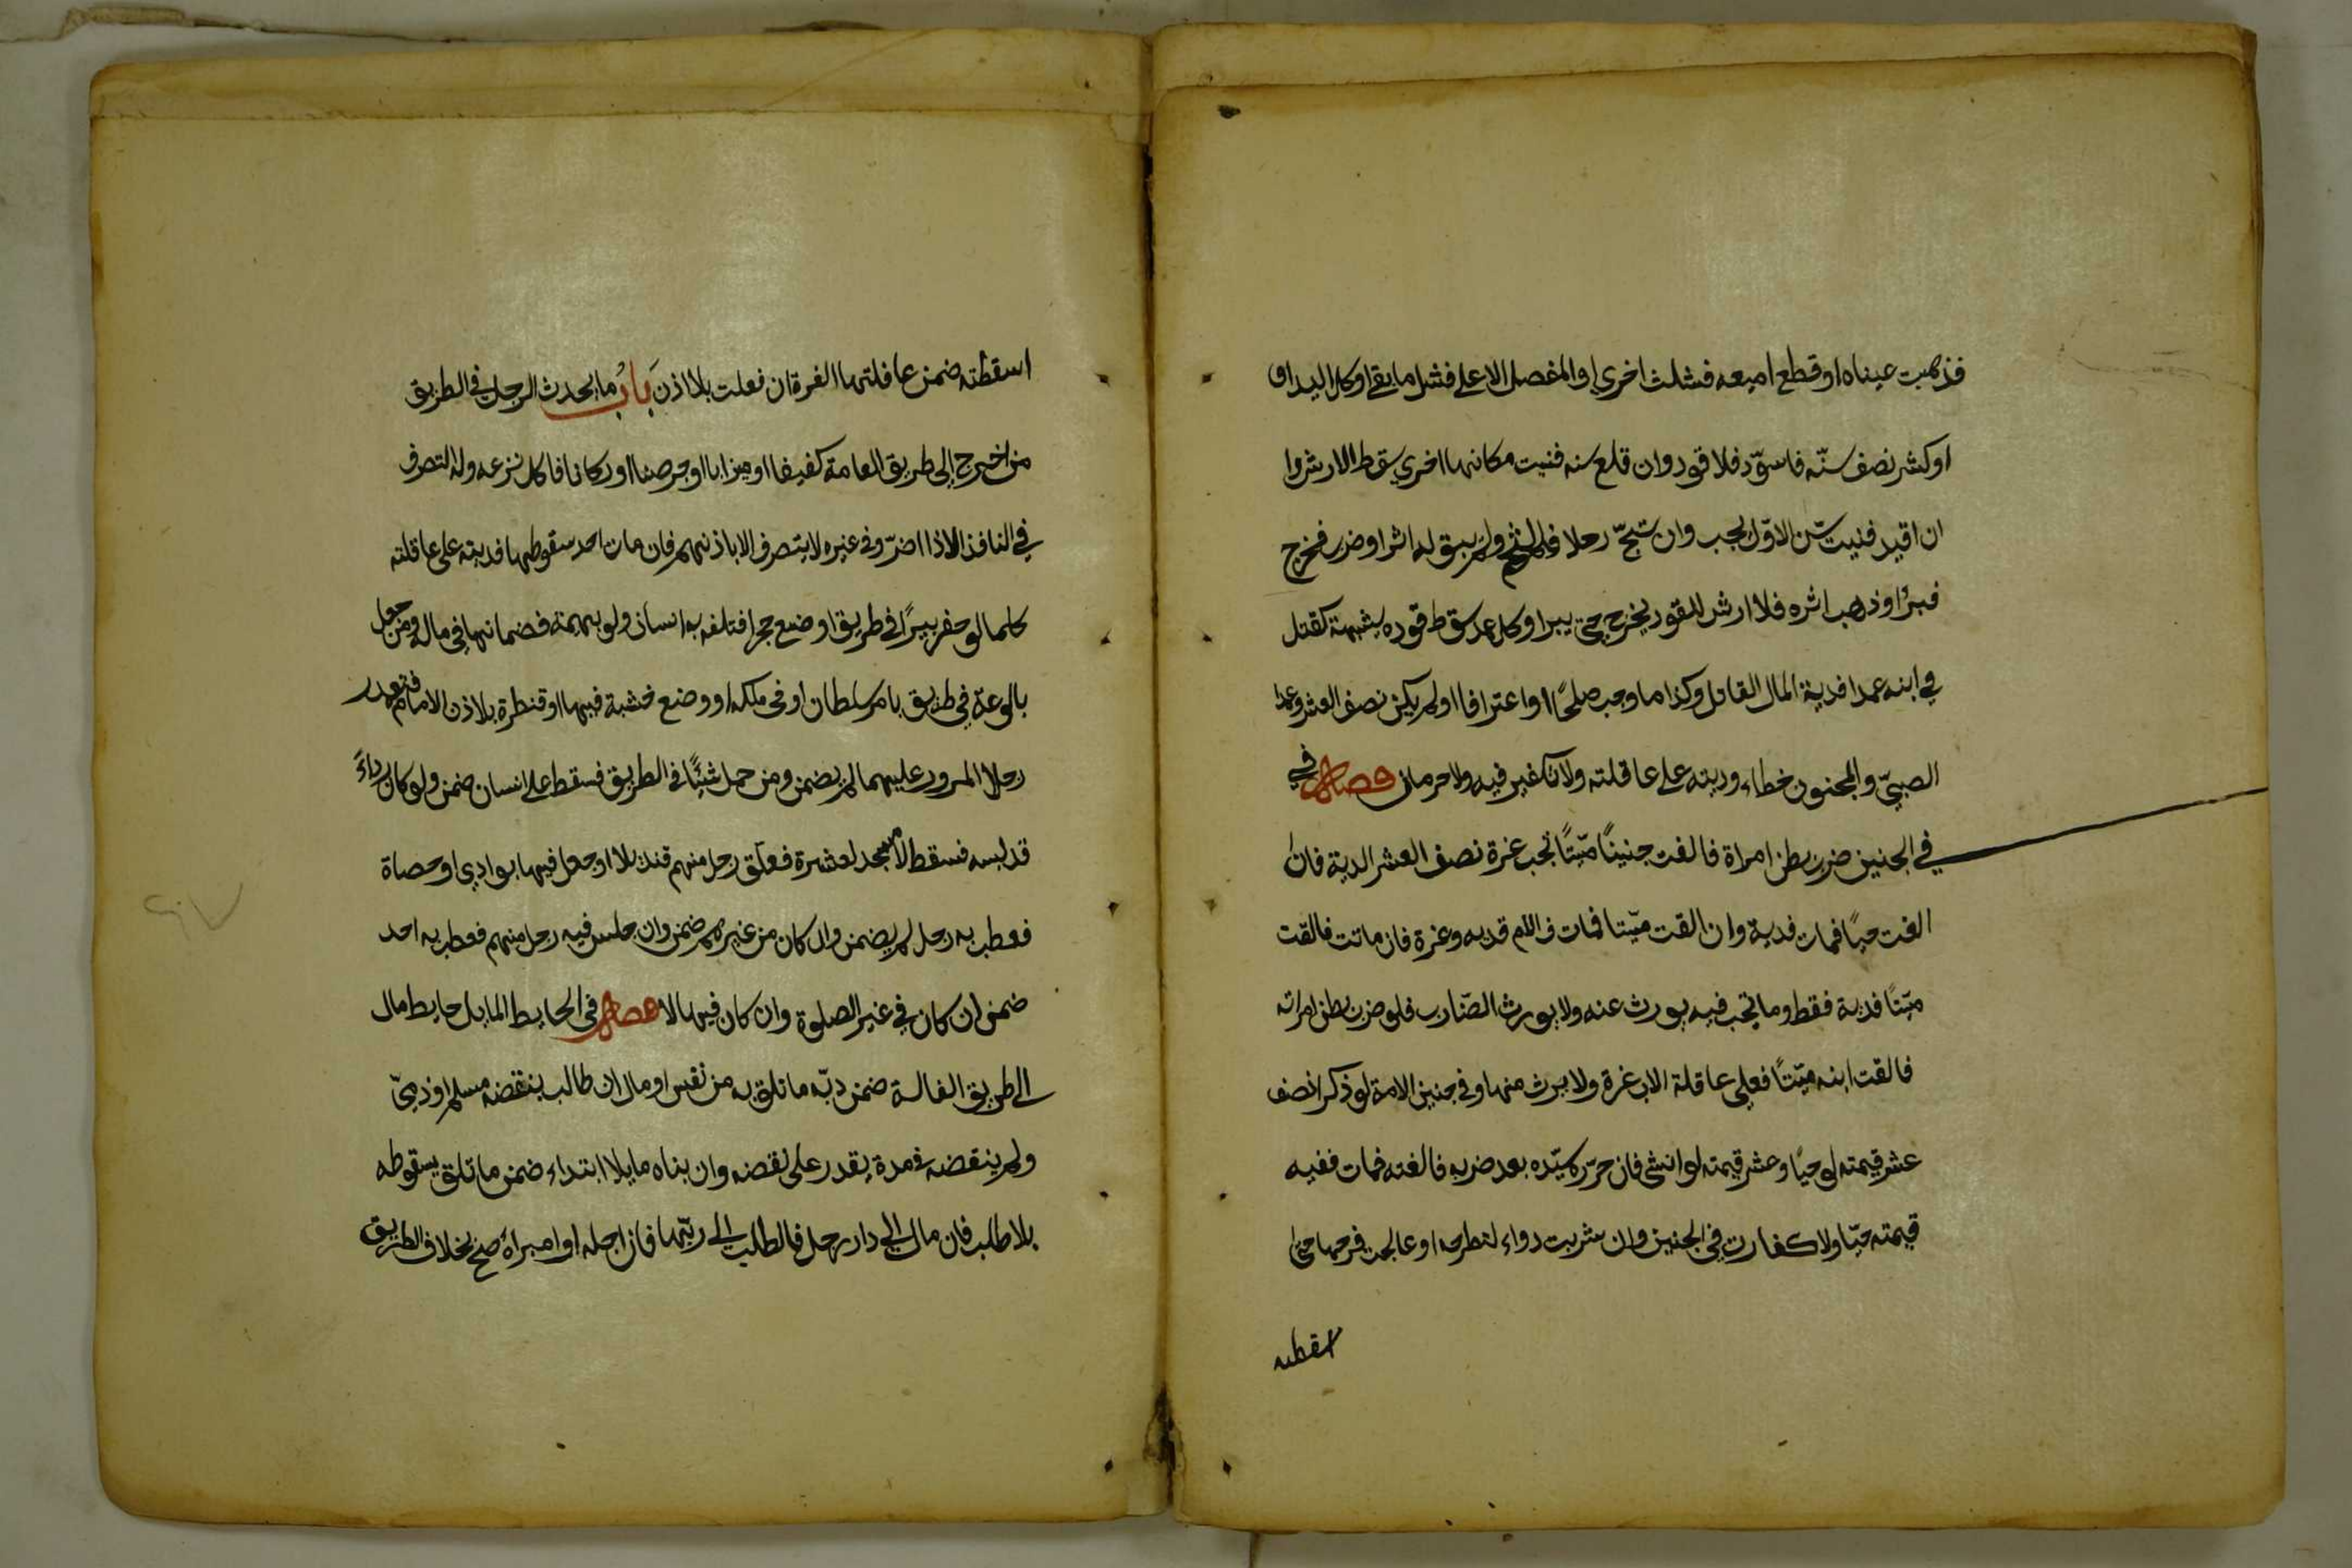 فذهبت عيناه او قطع اصبعه فشلت اخرى او المفصل الاعلى فشل ما بقى او كل اليد او
او كسر نصف سنّه فاسوّد فلا قود وان قلع سنه فنبت مكانها اخرى سقط الارش وا
ان اقيد فنبت سّن الاوّل يجب وان شجّ رجلا فالتحم ولم يبق له اثر او ضرب فخرج
فبرأ وذهب اثره فلا ارش للقود بجرح حتى يبرا وكل عمد سقط قوده بشبهة كقتل
في ابنه عمدا فدية المال القاتل وكذا ما وجب صلحًا او اعترافا او لم يكن نصف العشر وعمد
الصبيّ والمجنون خطاء وديته على عاقلته ولا تكفير فيه ولا حرمان فصل في
في الجنين ضرب بطن امراة فالقت جنينًا ميّتًا تجب غرة نصف العشر الدية فان
القت حيًا فمات فدية وان القت ميّتا فمات ف الام فديه وغرة فان ماتت فالقت
ميّتًا فدية فقط وما يجب فيه يورث عنه ولا يورث الضّارب فلو ضرب بطن امراته
فالقت ابنه ميّتًا فعلى عاقلة الاب غرة ولا يرث منها وفي جنين الامة لو ذكرا نصف
عشر قيمته لو حيًا وعشر قيمته لو انثى فان حرّره سيّده بعد ضربه فالقته فمات ففيه
قيمته حيّا ولا كفارت في الجنين وان شربت دواء لتطرحه او عالجت فرجها حتى
اسقطته
اسقطته ضمن عاقلتها الغرة ان فعلت بلا اذن بَابُ ما يحدث الرجل في الطريق
من اخرج الى طريق العامة كنيفا او ميزابا او جرصنا او دكانا فلكل نزعه وله التصرف
في النافذ الا اذا اضرّ وفي غيره لا يتصرف الا باذنهم فان مات احد سقوطها فديته على عاقلته
كلما لو حفر بيرًا في طريق او وضع حجرا فتلف به انسان ولو بهيمة فضمانها في ماله ومن جعل
بالوعة في طريق بامر سلطان او في ملكه او وضع خشبة فيها او قنطرة بلا اذن الامام فتعمد
رجلا المرور عليهما لم يضمن ومن حمل شيئًا في الطريق فسقط على انسان ضمن ولو كان رداءً
قد لبسه فسقط لا مسجد لعشيرة فعلق رجل منهم قنديلا او جعل فيها بوارى او حصاة
فعطب به رجل لم يضمن وان كان من غيرهم ضمن وان جلس فيه رجل منهم فعطب به احد
ضمن ان كان في غير الصلوة وان كان فيها لا فصل في الحايط المايل حايط مال
الى طريق العامة ضمن ربّه ما تلف به من نفس او مال ان طالب بنقضه مسلم او ذميّ
ولم ينقضه في مدة يقدر على نقضه وان بناه مايلا ابتداء ضمن ما تلف بسقوطه
بلا طلب فان مال الى دار رجل فالطلب الى ربّها فان اجله او ابراه صح بخلاف الطريق